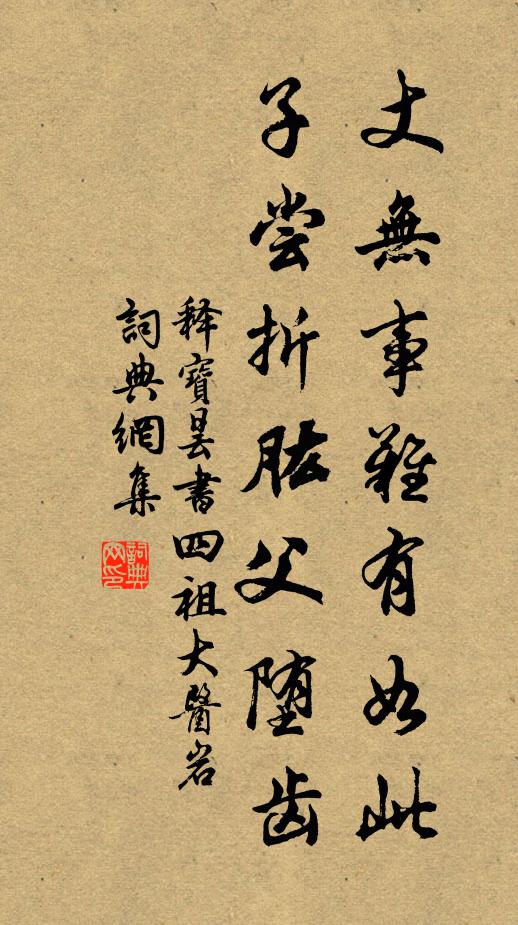 丈無事難有如此
子尝折肱父堕齿
释寶曇書四祖大醫岩
詞典網集
詞典
网印